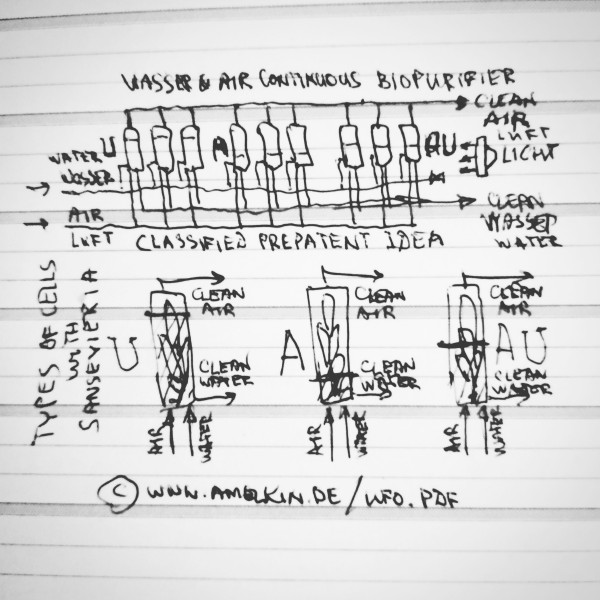 WASSER & AIR CONTINUOUS BIOPURIFIER
CLEAN
AIR
LUFT
LICHT
U
A
AU
WATER
WASSER
AIR
LUFT
CLEAN
WASSER
WATER
CLASSIFIED PREPATENT IDEA
TYPES OF CELLS
WITH
SANSEVIERIA
U
CLEAN
AIR
CLEAN
WATER
AIR
WATER
A
CLEAN
AIR
CLEAN
WATER
AIR
WATER
AU
CLEAN
AIR
CLEAN
WATER
AIR
WATER
© WWW.AMELKIN.DE/UFO.PDF